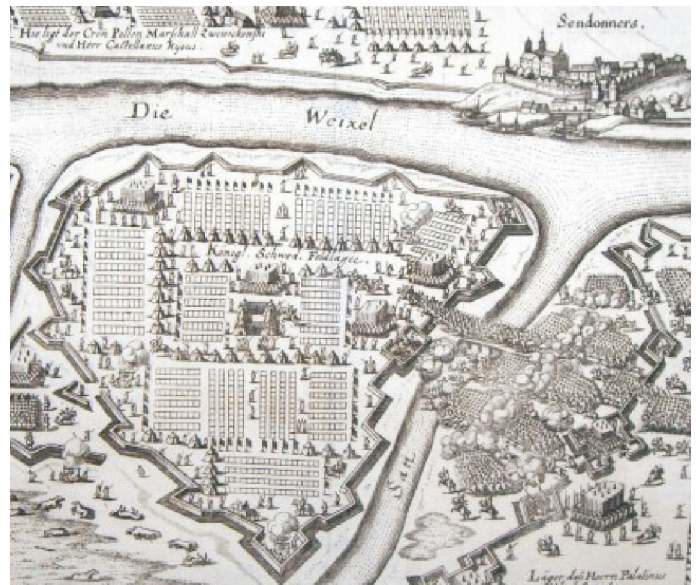 Hie ligt der Cron Pollen Marschall
und Herr Castellanus
Sendomiers.
Die Weixel
Königl. Schwed. Feldlager.
San
Läger des Herrn Palatinus